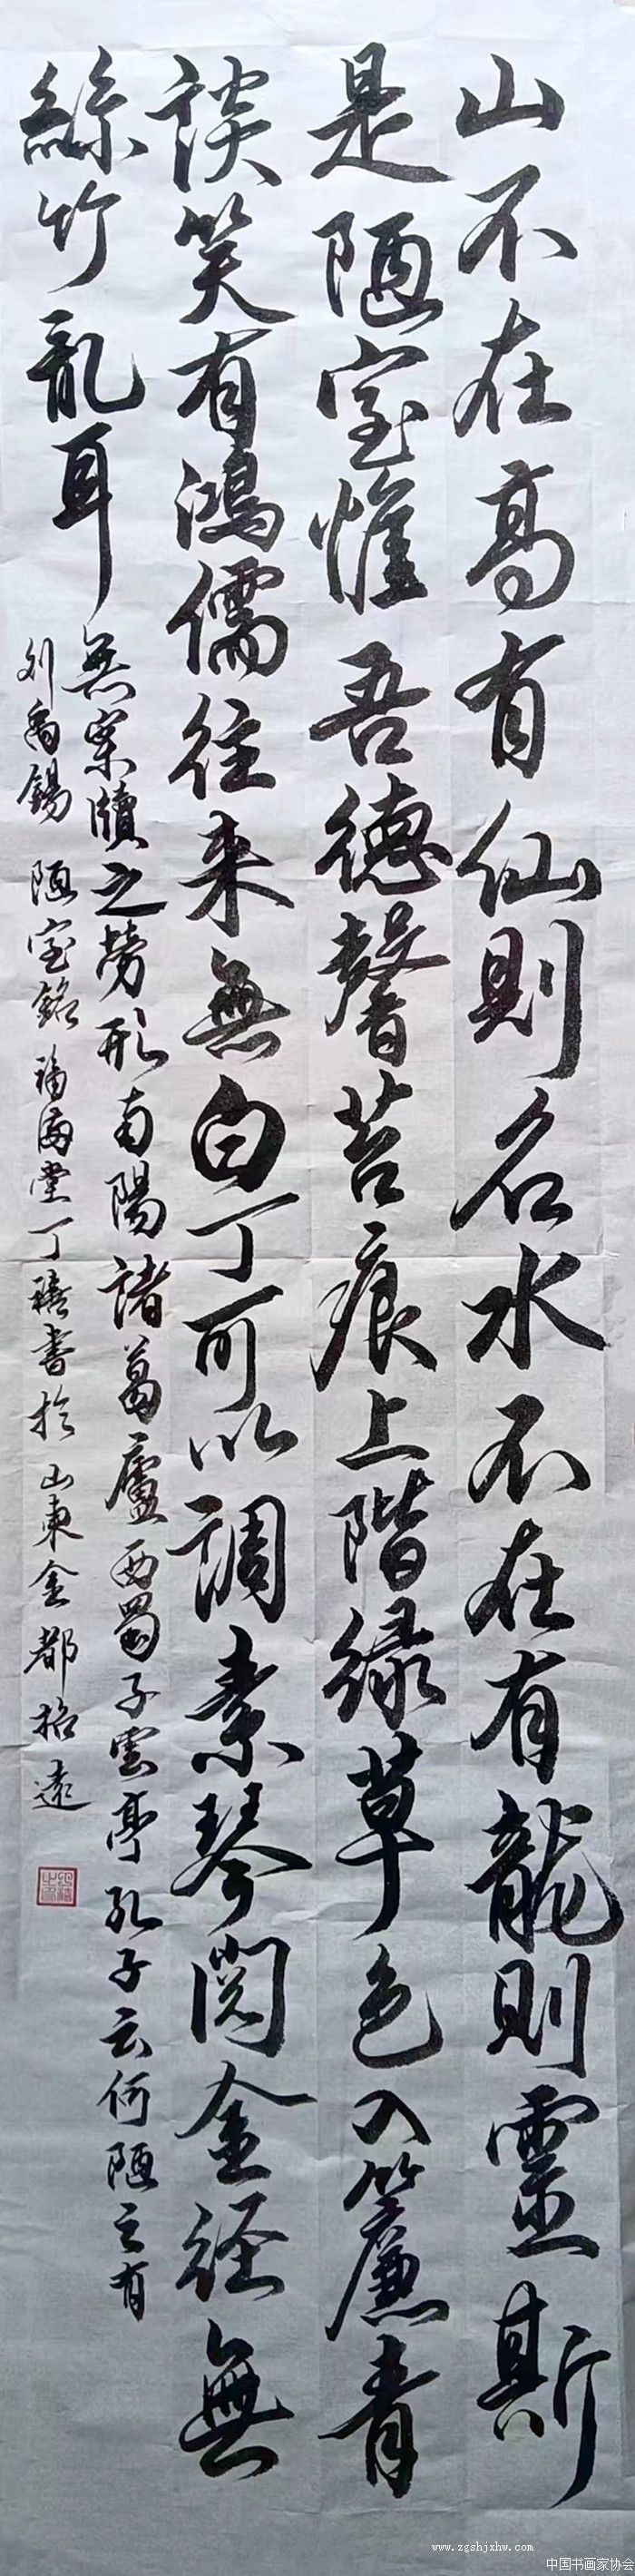 山不在高有仙則名水不在有龍則靈斯
是陋室惟吾德馨苔痕上階緑草色入簾青
談笑有鴻儒往来無白丁可以調素琴閲金経無
絲竹亂耳
無案牘之勞形南陽諸葛廬西蜀子雲亭孔子云何陋之有
刘禹錫陋室銘福滿堂丁禧書於山東金都招遠
www.zgshjxhw.com
中国书画家协会